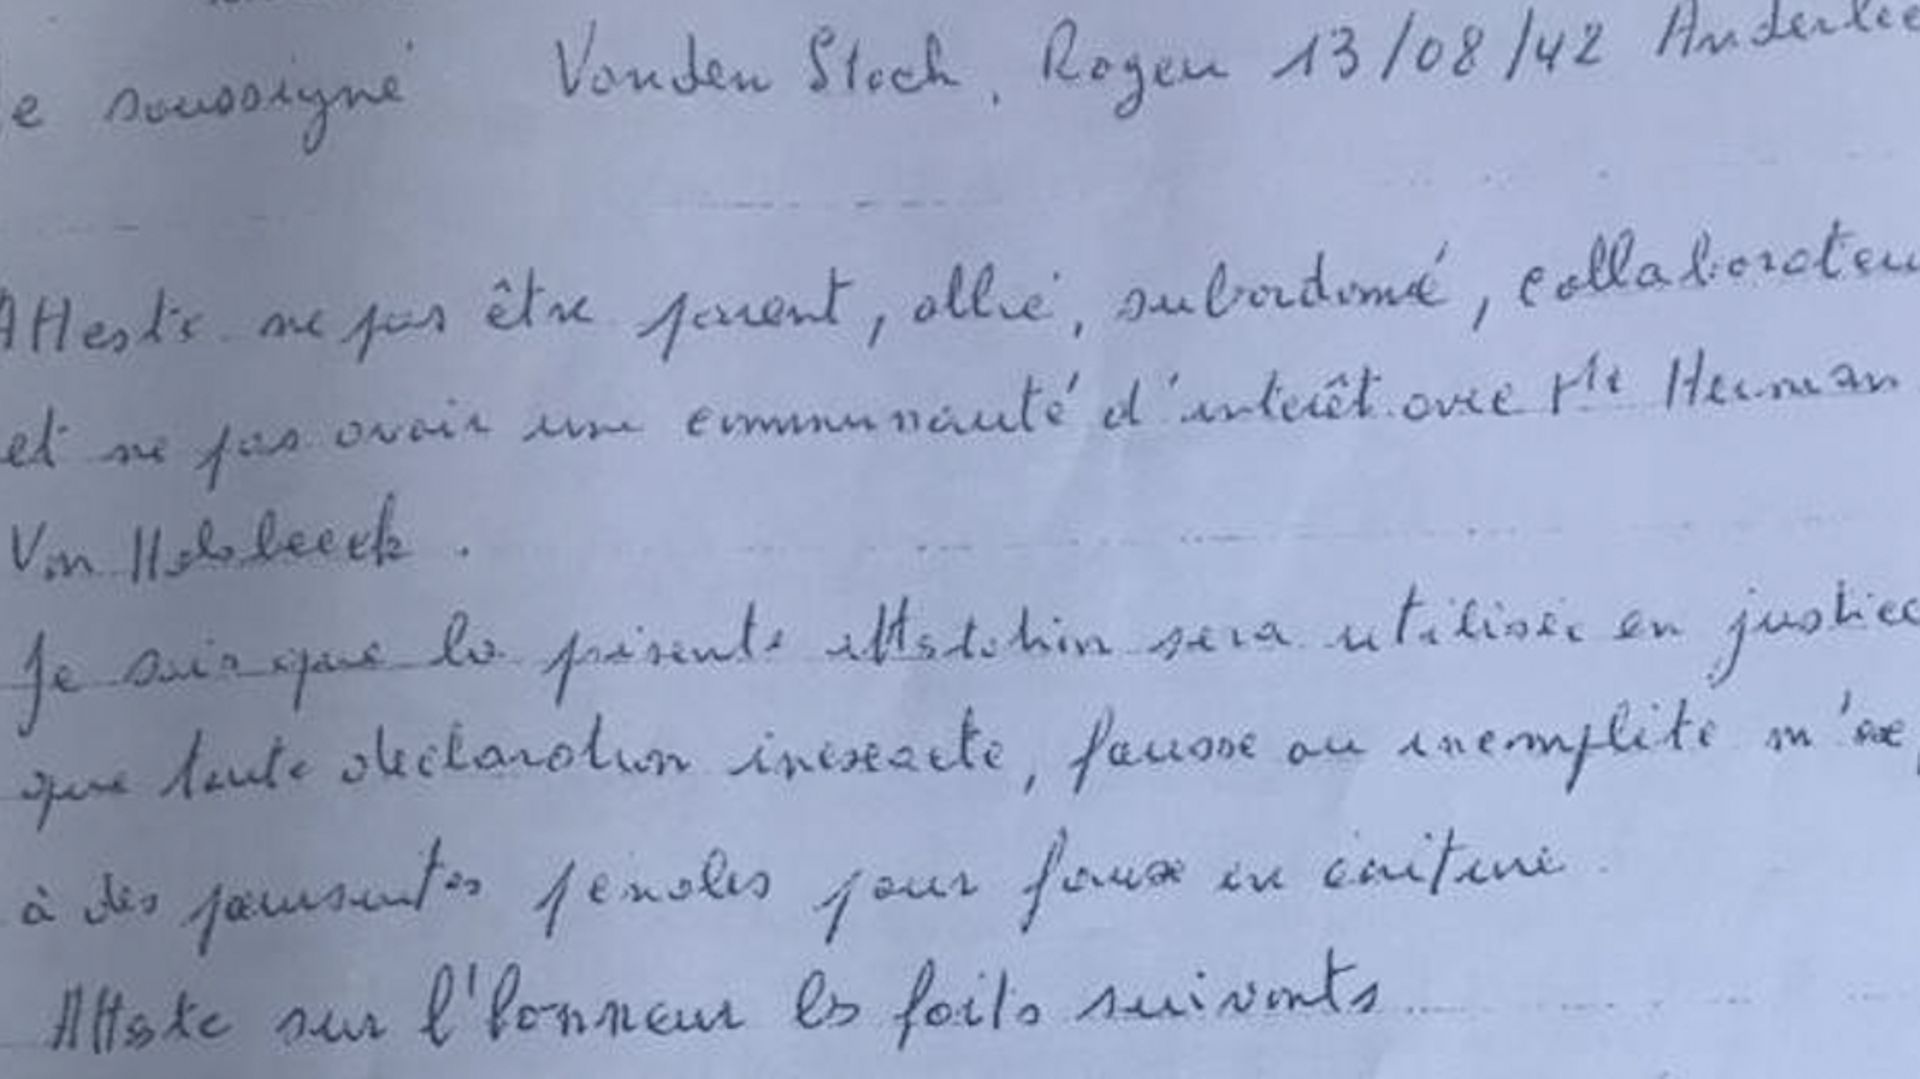 e soussigné Vanden Stock, Roger 13/08/42 Anderlec
Atteste ne pas être parent, allié, subordonné, collaborateu
et ne pas avoir une communauté d'interêt avec Mr Herman
Van Holsbeeck.
Je sais que la présente attestation sera utilisée en justice
que toute déclaration inexacte, fausse ou incomplète m'exp
à des poursuites pénales pour faux en écriture.
Atteste sur l'honneur les faits suivants